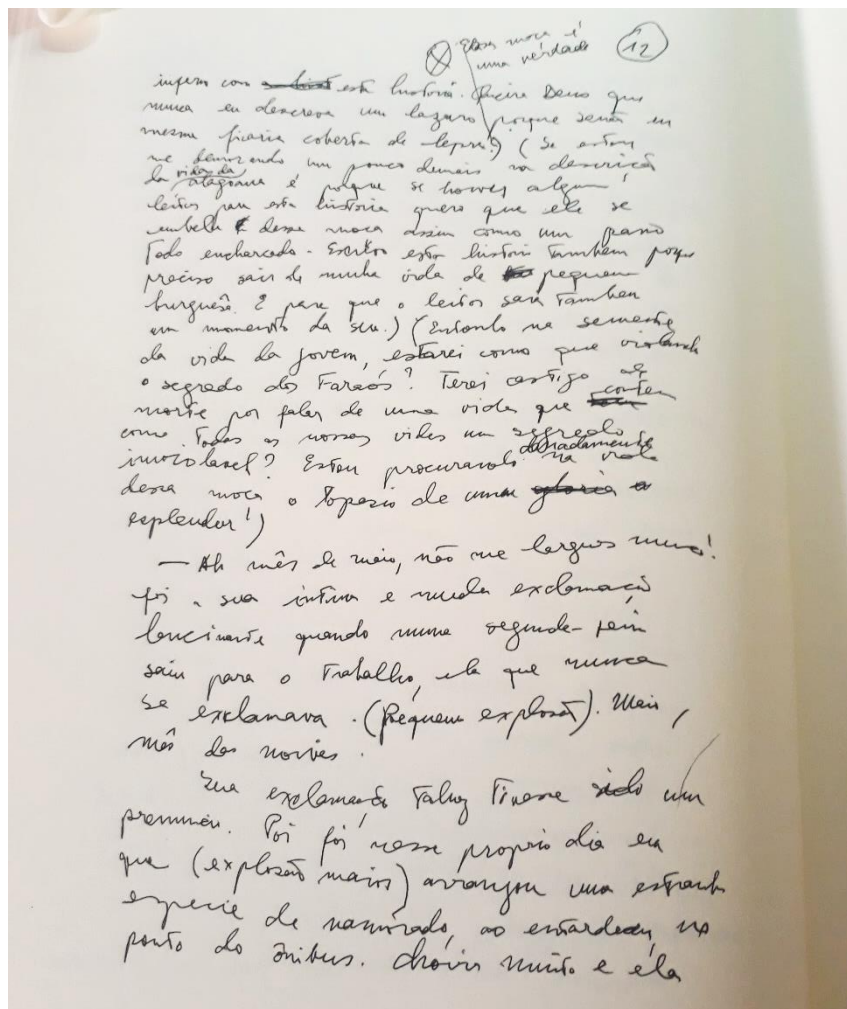 Essa moça é
uma verdade
12
inferno com esta história. Queira Deus que
nunca eu descreva um lazaro porque senão eu
mesma ficaria coberta de lepra.) (Se estou
me demorando um pouco demais na descrição
da vida da alagoana é porque se houver algum
leitor para esta história quero que ele se
embeba dessa moça assim como um pano
todo encharcado. Escrevo esta história também porque
preciso sair de minha vida de pequeno
burguês. E para que o leitor saia também
um momento da sua.) (Enfoando na semente
da vida da jovem, estarei como que violando
o segredo dos Faraós? Terei castigo de
morte por falar de uma vida que contem
como todas as nossas vidas um segredo
inviolavel? Estou procurando danadamente na vida
dessa moça o topazio de um
esplendor!)
— Ah mês de maio, não me largues nunca!
foi a sua intima e muda exclamação
lancinante quando numa segunda-feira
saiu para o trabalho, ela que nunca
se exclamava. (Pequena explosão). Maio,
mês das noivas.
Sua exclamação talvez tivesse sido um
prenuncio. Pois foi nesse proprio dia em
que (explosão maior) arranjou uma estranha
especie de namorado, ao entardecer, no
ponto do ônibus. Chovia muito e ela